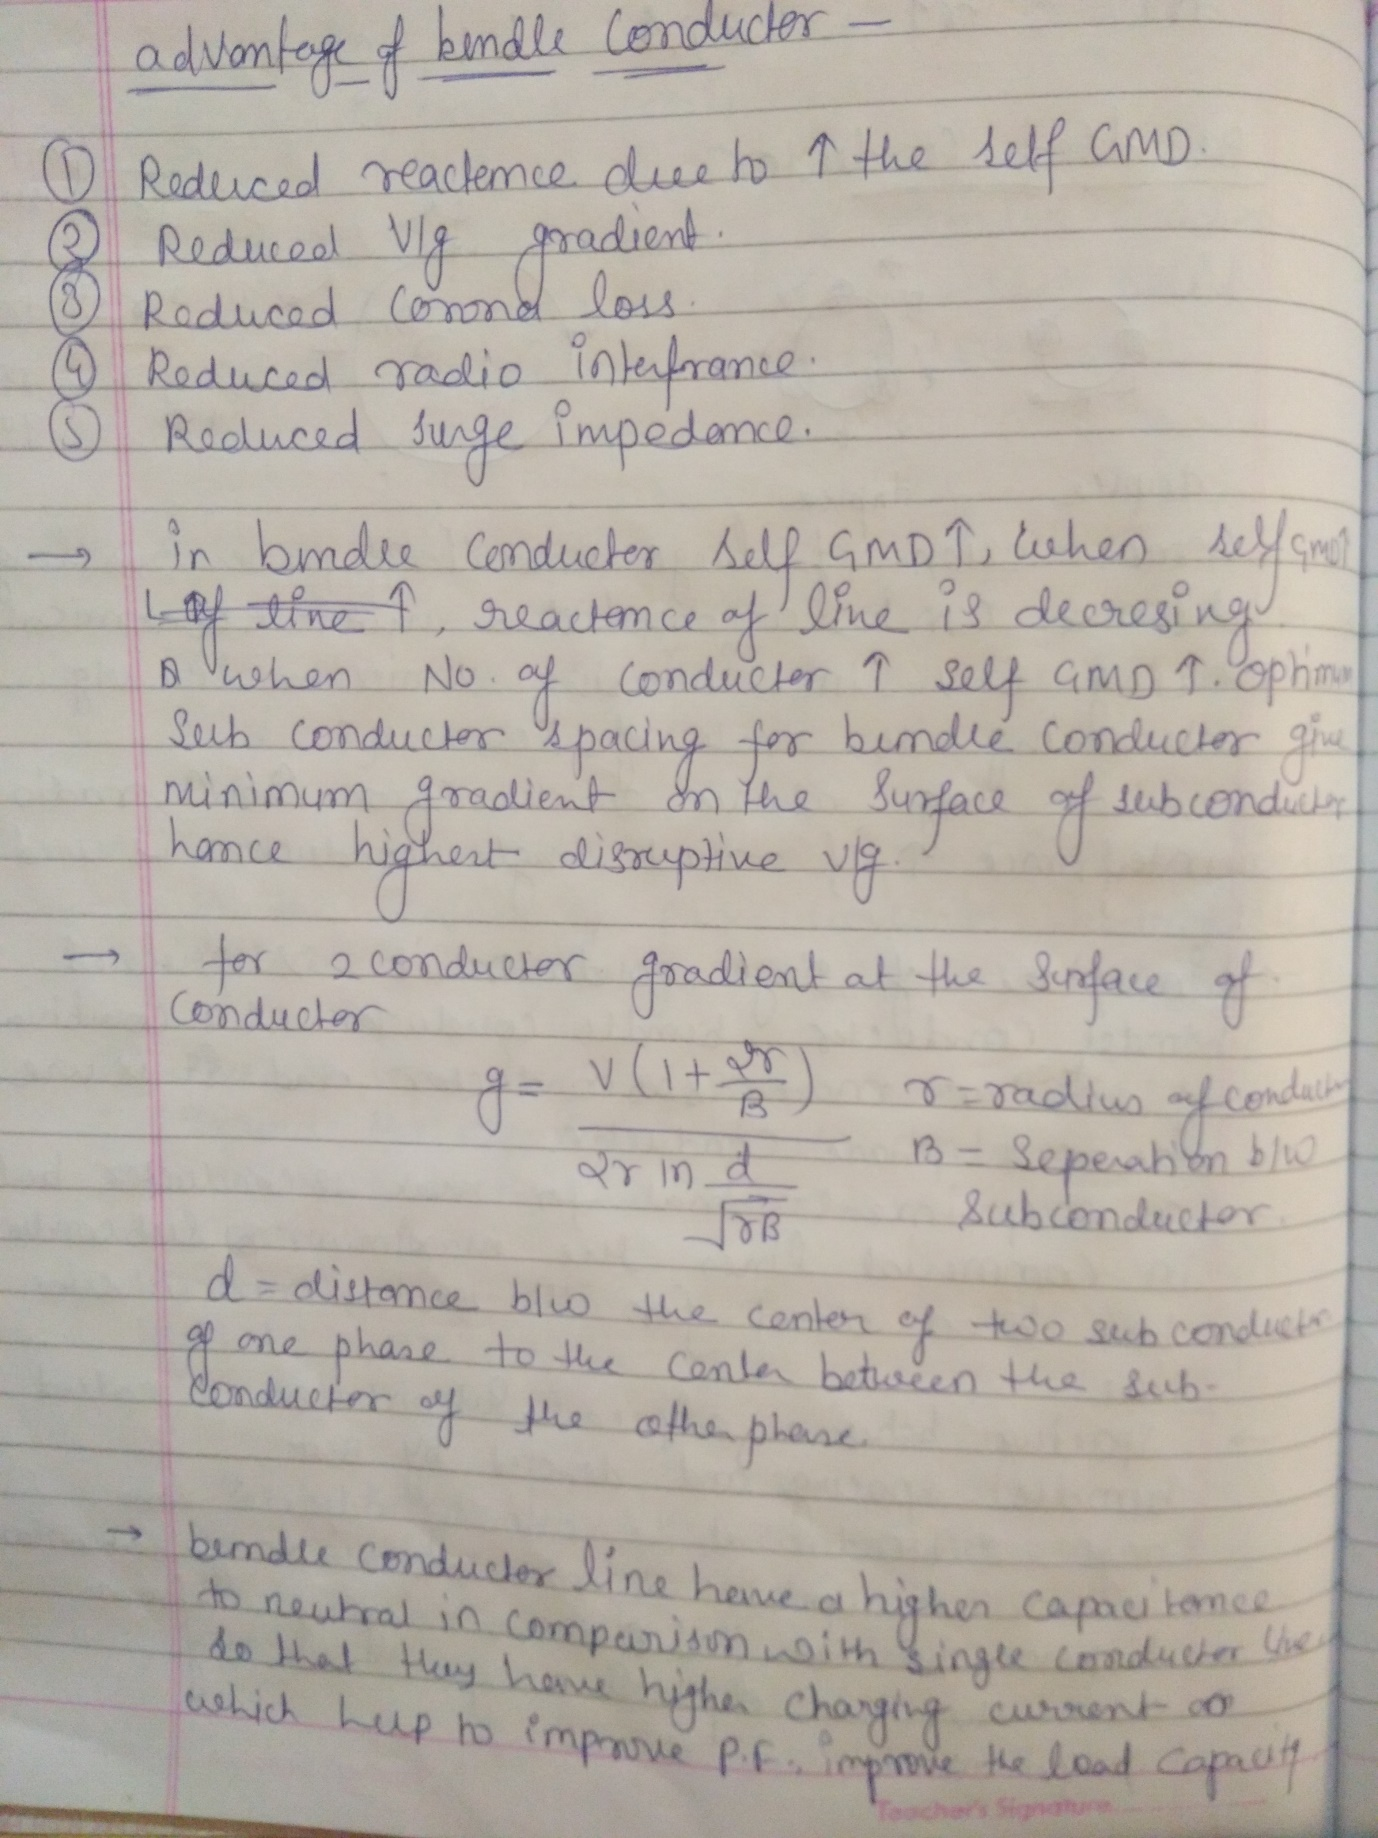 advantage of bundle Conductor —
① Reduced reactance due to ↑ the self GMD.
② Reduced V/g gradient.
③ Reduced Corona loss.
④ Reduced radio interfrance.
⑤ Reduced surge impedance.
→ in bundle Conductor self GMD↑, when self GMD↑
of line ↑, reactance of line is decresing
when No. of conductor ↑ self GMD ↑. Optimum
Sub conductor spacing for bundle conductor give
minimum gradient on the surface of subconductor
hance highest disruptive v/g.
→ for 2 conductor gradient at the surface of
conductor
g = V(1 + 2r/B) / 2r ln d/√rB
r = radius of conductor
B = Seperation b/w
Subconductor
d = distance b/w the center of two sub conductor
of one phase to the center between the sub-
conductor of the other phase.
→ bundle conductor line have a higher capacitance
to neutral in comparison with single conductor line
so that they have higher charging current
which help to improve P.F., improve the load capacity
Teacher's Signature